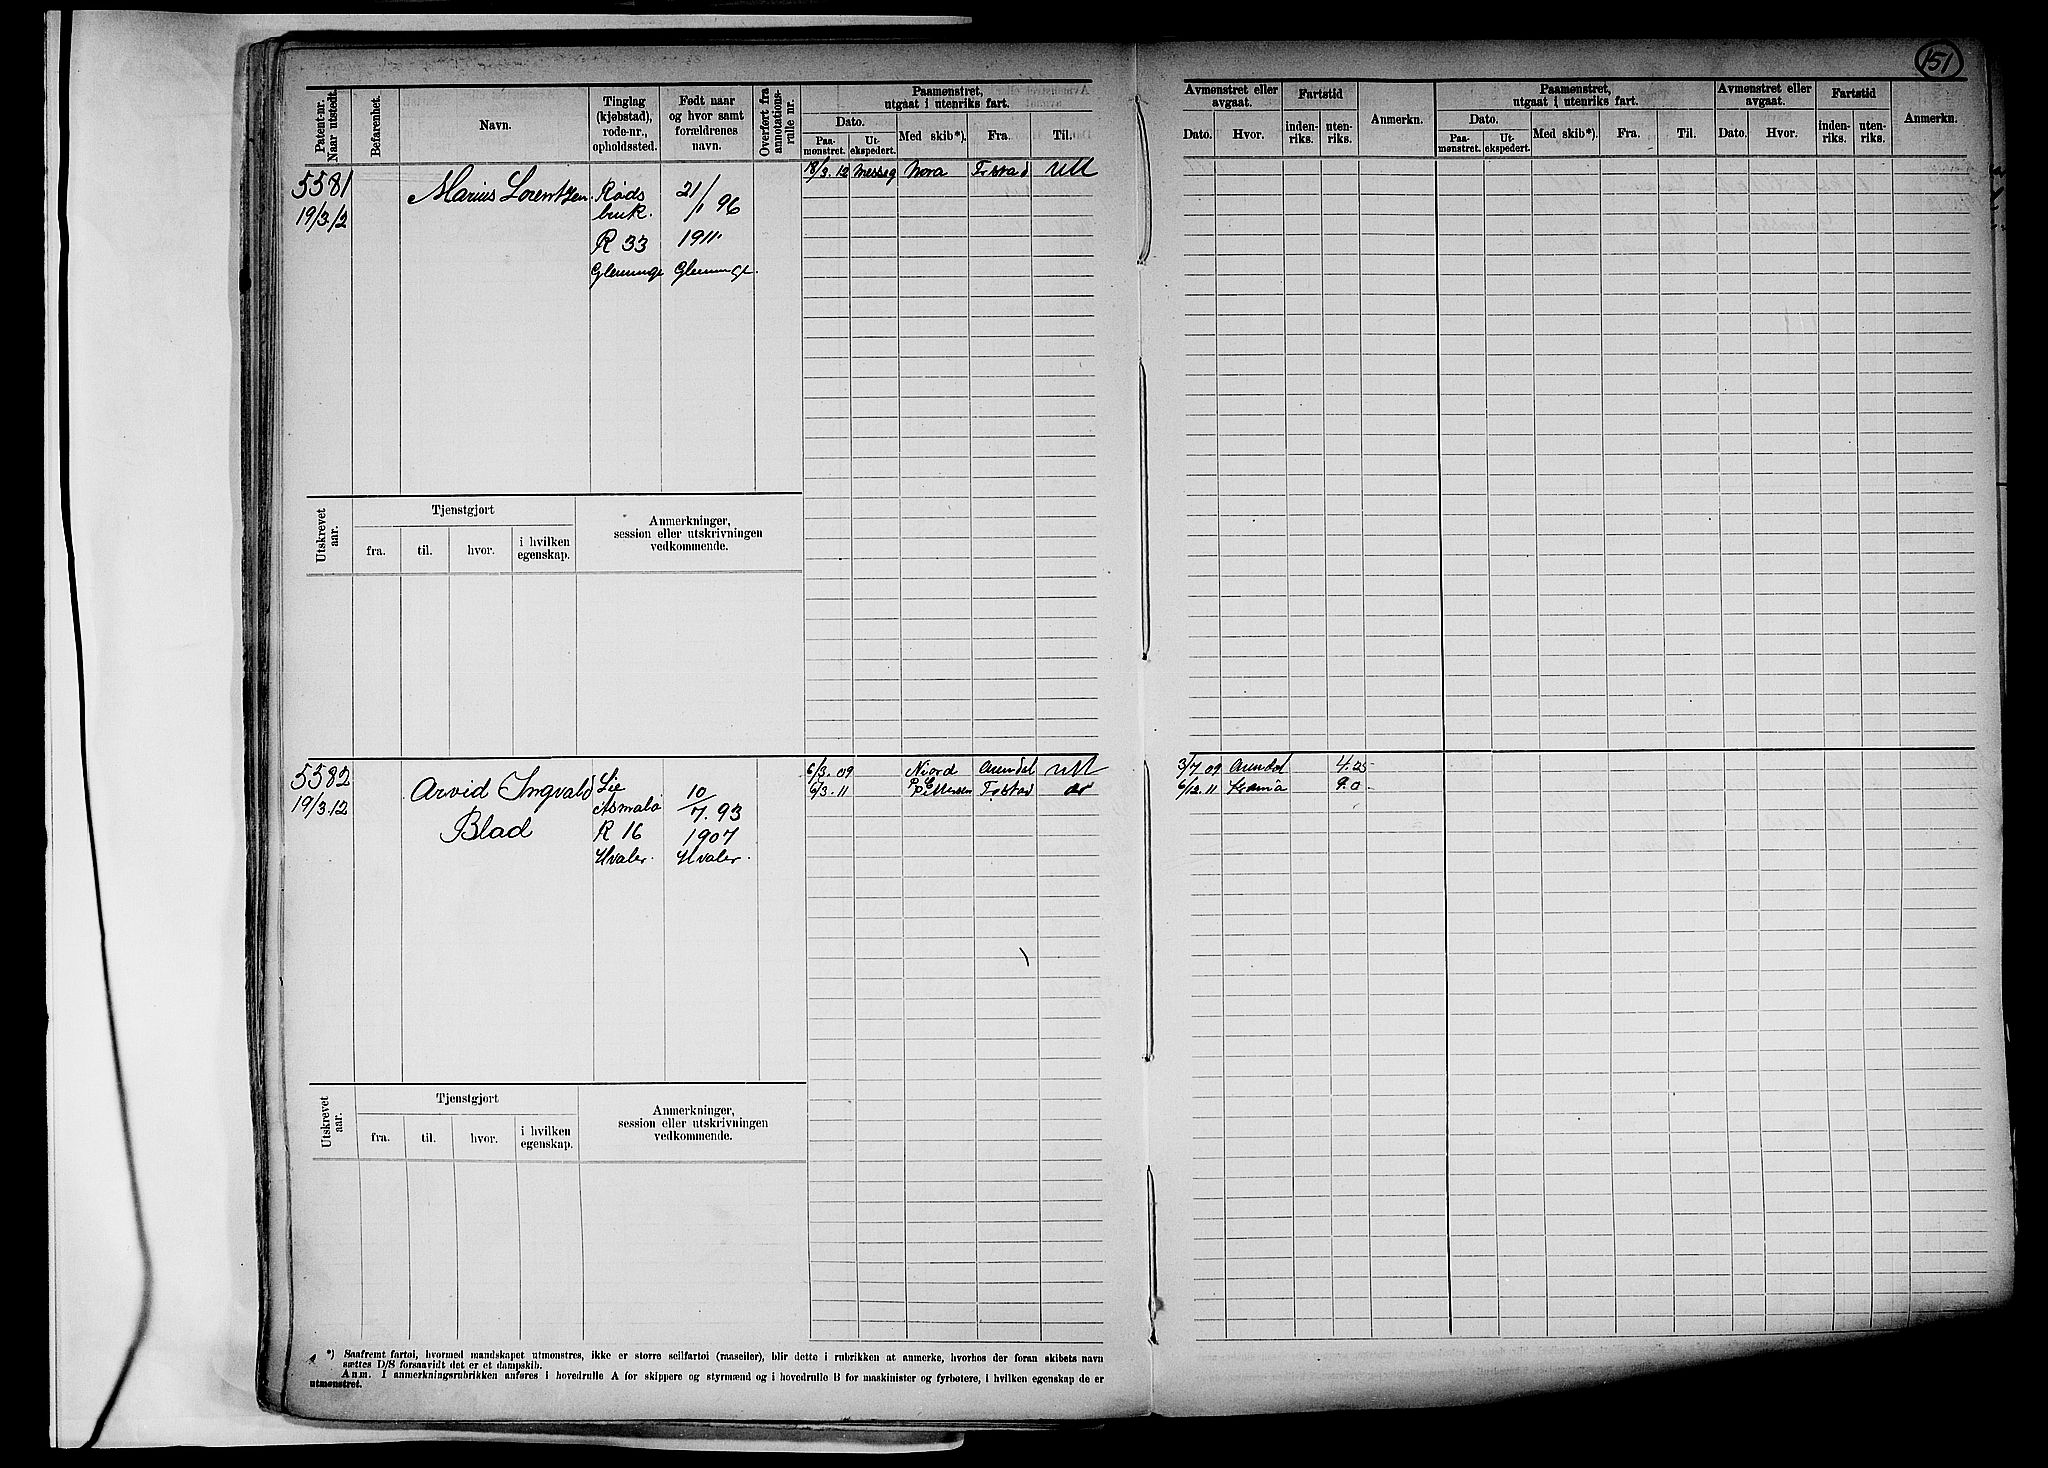 151
Patent-nr.
Naar utstedt.
Befarenhet.
Navn.
Tinglag
(kjøbstad),
rode-nr.,
opholdssted.
Født naar
og hvor samt
forældrenes
navn.
Overført fra
annotations-
rulle nr.
Paamønstret,
utgaat i utenriks fart.
Dato.
Paa-
mønstret.
Ut-
ekspedert.
Med skib*).
Fra.
Til.
Avmønstret eller
avgaat.
Dato.
Hvor.
Fartstid
inden-
riks.
uten-
riks.
Anmerkn.
Paamønstret,
utgaat i utenriks fart.
Dato.
Paa-
mønstret.
Ut-
ekspedert.
Med skib*).
Fra.
Til.
Avmønstret eller
avgaat.
Dato.
Hvor.
Fartstid
inden-
riks.
uten-
riks.
Anmerkn.
5581
19/3.12
Marius Lorentzen
Røds
bruk.
R 33
Glemminge
21/1 96
1911
Glemminge.
18/3.12
Nora
Utskrevet
aar.
Tjenstgjort
fra.
til.
hvor.
i hvilken
egenskap.
Anmerkninger,
session eller utskrivningen
vedkommende.
5582
19/3.12
Arvid Ingvald
Blad
Lie
Asmalø
R 16
Hvaler.
10/7.93
1907
Hvaler.
6/3.09 Njord Arendal
6/3.11 P. Pettersen
3/7 09 Arendal 4.25
6/12.11 9.0
Utskrevet
aar.
Tjenstgjort
fra.
til.
hvor.
i hvilken
egenskap.
Anmerkninger,
session eller utskrivningen
vedkommende.
*) Saafremt fartøi, hvormed mandskapet utmønstres, ikke er større seilfartøi (raaseiler), blir dette i rubrikken at anmerke, hvorhos der foran skibets navn
sættes D/S forsaavidt det er et dampskib.
Anm. I anmerkningsrubrikken anføres i hovedrulle A for skippere og styrmænd og i hovedrulle B for maskinister og fyrbøtere, i hvilken egenskap de er
utmønstret.